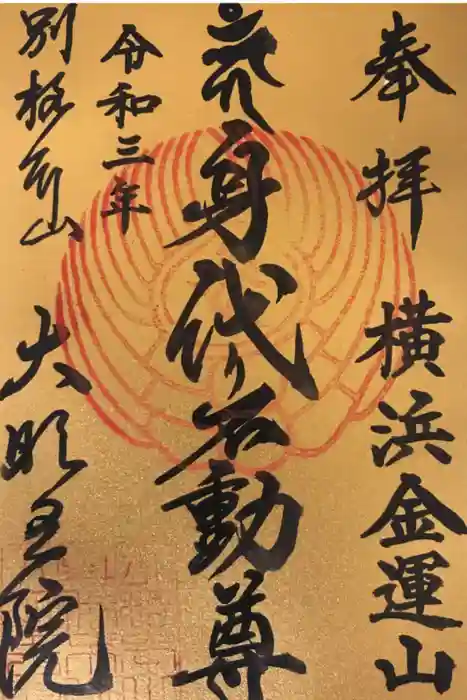 奉拝　横浜金運山
身代り不動尊
令和三年
別格本山　大明王院